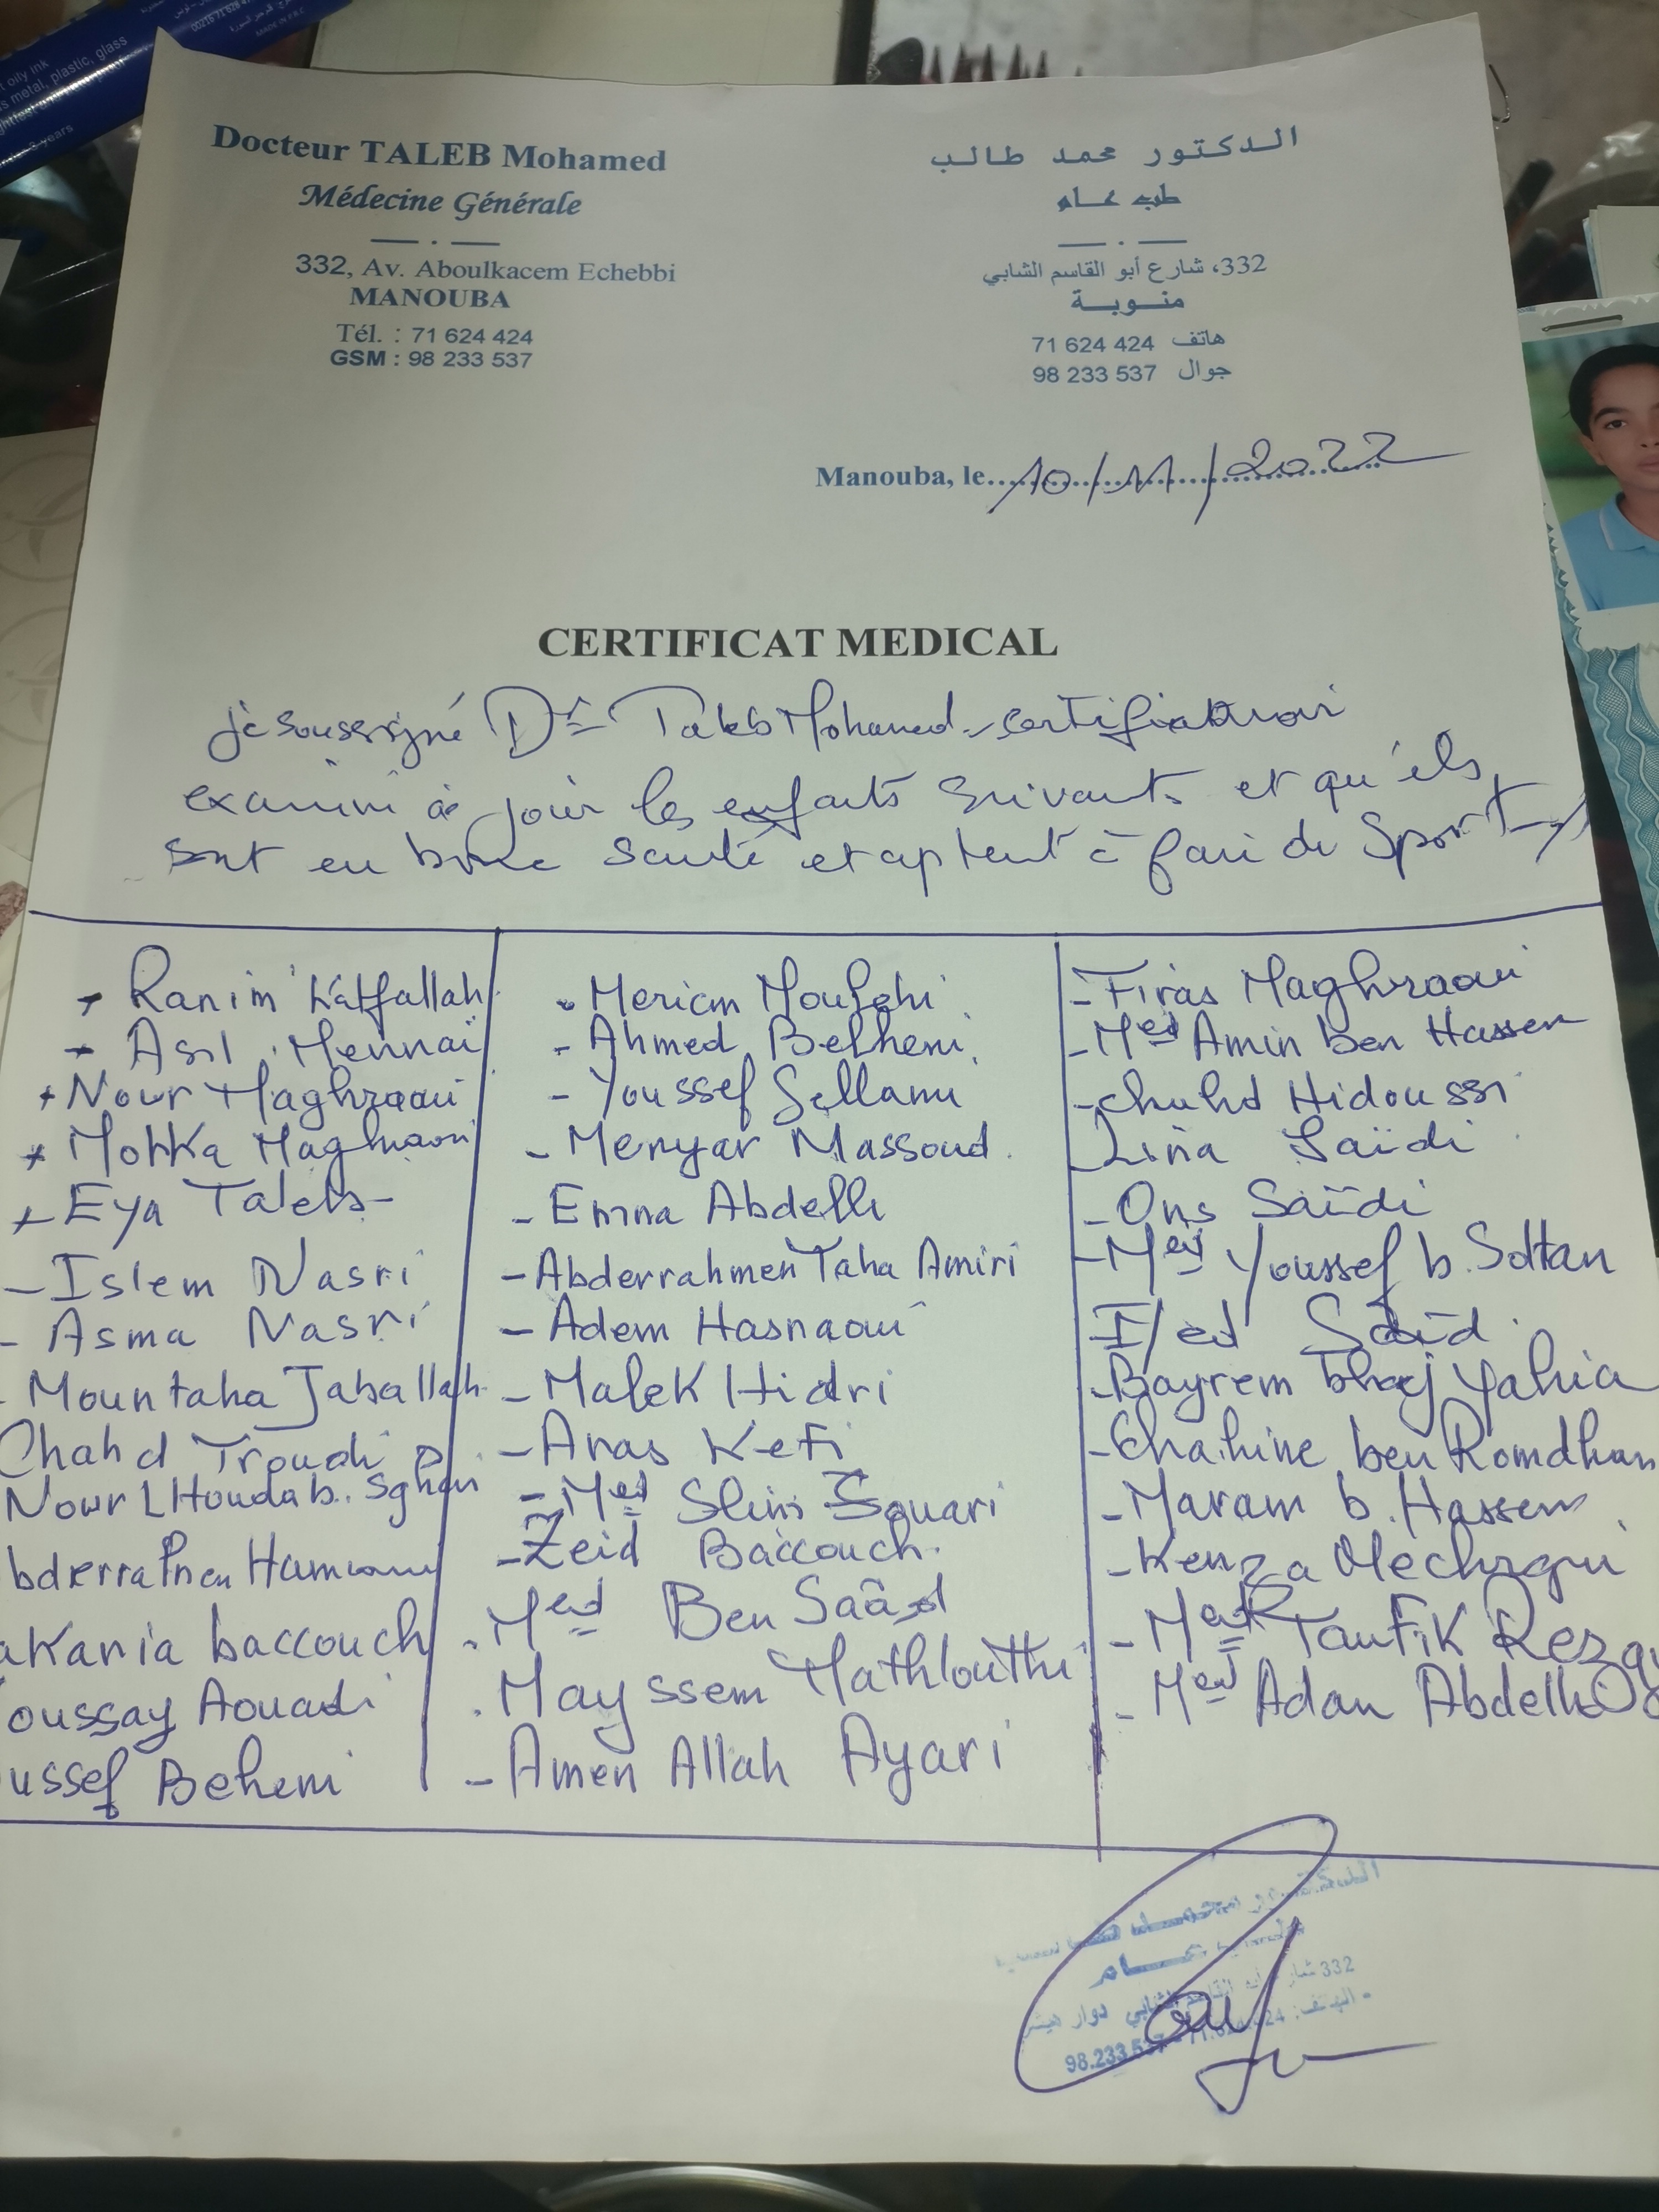 oily ink
metal, plastic, glass
years
Docteur TALEB Mohamed
Médecine Générale
332, Av. Aboulkacem Echebbi
MANOUBA
Tél. : 71 624 424
GSM : 98 233 537
الدكتور محمد طالب
طب عام
332، شارع أبو القاسم الشابي
منوبة
هاتف 71 624 424
جوال 98 233 537
Manouba, le 10/11/2022
CERTIFICAT MEDICAL
je soussigné Dr Taleb Mohamed certifie avoir
examiné ce jour les enfants suivants et qu'ils
sont en bonne santé et aptent à faire du Sport
Ranim Katfallah
Asil Mennaï
Nour Maghraoui
Mohka Maghraoui
Eya Taleb
- Islem Nasri
- Asma Nasri
- Mountaha Jaballah
Chahd Troudi
Nour LHouda b. Sghair
bderrahmen
akaria baccouch
oussay Aouadi
ussef Behemi
- Meriam
- Ahmed Belhemi
- Youssef Sellami
- Menyar Massoud
- Emna Abdelli
- Abderrahmen Taha Amiri
- Adem Hasnaoui
- Malek Hidri
- Anas Kefi
- Med Slim Souari
- Zeid Baccouch
- Med Ben Saâd
- Mayssem Mathlouthi
- Amen Allah Ayari
- Firas Maghraoui
- Med Amin ben Hassen
- Chahd Hidoussi
- Lina Saïdi
- Ons Saïdi
- Med Youssef b. Soltan
Saïd
- Bayrem bhaj Yahia
- Chahine ben Romdhan
- Maram b. Hassen
- Kenza Mechrgui
- Med Taufik
- Med Adan
عام
332
98.233.537